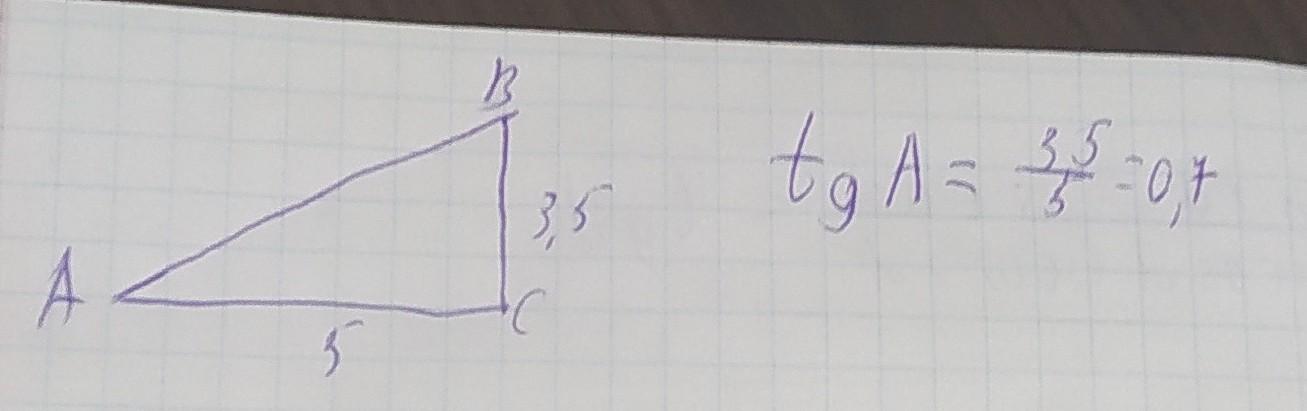 B
tg A = 3,5/5 = 0,7
3,5
A
C
5